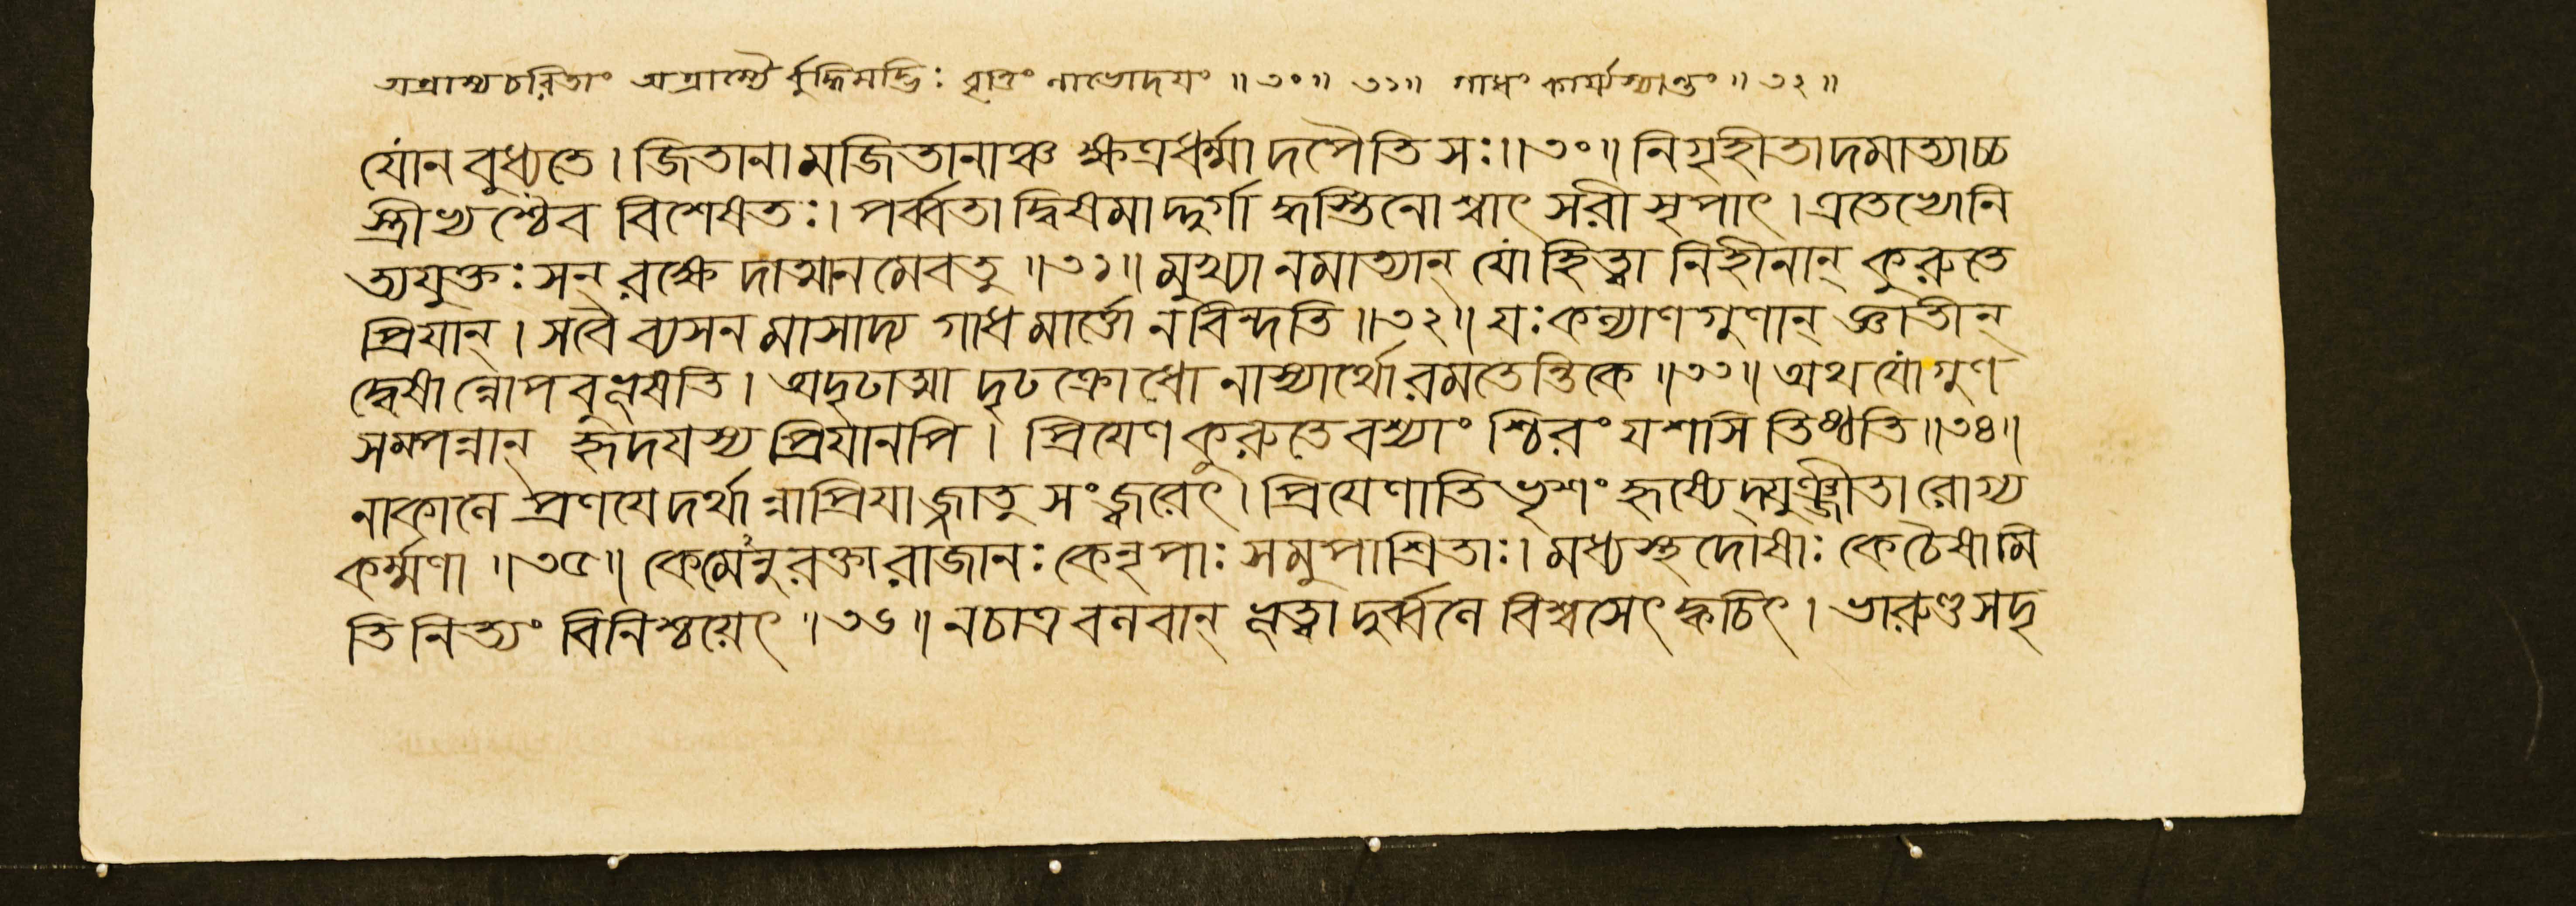 অগ্রাম্যচরিতাং অগ্রাম্যৈর্বুদ্ধিমদ্ভিঃ বৃত্তিং নাভোদযং ॥ ৩০॥ ৩১॥ গাধং কার্য্যস্যান্তং ॥ ৩২॥
যোনবুধ্যতে। জিতানামজিতানাঞ্চ ক্ষত্রধর্ম্মাদপৈতি সঃ॥৩০॥ নিগৃহীতাদমাত্যাচ্চ
স্ত্রীভ্যশ্চৈব বিশেষতঃ। পর্ব্বতাদ্বিষমাদ্দুর্গাদ্ধস্তিনোশ্বাৎ সরীসৃপাৎ। এতেভ্যোনি
ত্যযুক্তঃ সন্ রক্ষেদাত্মানমেবতু ॥৩১॥ মুখ্যানমাত্যান্ যোহিত্বা নিহীনান্ কুরুতে
প্রিযান্। সবৈ ব্যসনমাসাদ্য গাধমার্ত্তো নবিন্দতি ॥৩২॥ যঃকল্যাণগুণান্ জ্ঞাতীন্
দ্বেষান্নোপবুভূষতি। অদৃঢাত্মা দৃঢক্রোধো নাস্যার্থোরমতেন্তিকে ॥৩৩॥ অথযোগুণ
সম্পন্নান্ হৃদযস্যপ্রিযানপি। প্রিযেণকুরুতেবশ্যাং শ্চিরং যশসি তিষ্ঠতি ॥৩৪॥
নাকালে প্রণযেদর্থান্নাপ্রিযাজ্জাতু সংজ্বরেৎ। প্রিযেণাতিভৃশং হৃষ্যেদ্যুঞ্জীতারোগ্য
কর্ম্মণা ॥৩৫॥ কেমেনুরক্তারাজানঃ কেনৃপাঃ সমুপাশ্রিতাঃ। মধ্যস্থদোষাঃ কেচৈষামি
তি নিত্যং বিনিশ্চয়েৎ ॥৩৬॥ নচাত্রবলবান্ ভূত্বা দুর্ব্বলে বিশ্বসেৎ ক্বচিৎ। ভারুণ্ডসদৃ